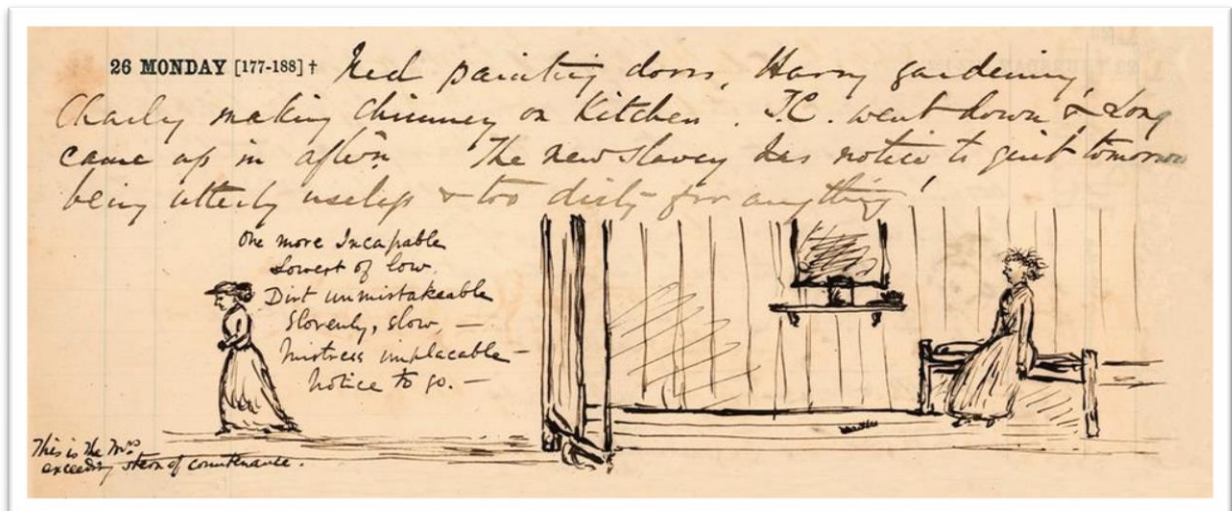 26 MONDAY [177-188] † Ned painting doors, Harry gardening,
Charley making chimney on Kitchen. T.C. went down & Long
came up in aftn The new slavey has notice to quit tomorrow
being utterly useless & too dirty for anything!
One more Incapable
Lowest of low,
Dirt unmistakeable
Slovenly, slow, —
Mistress implacable —
Notice to go. —
This is the Mrs
exceeding stern of countenance.